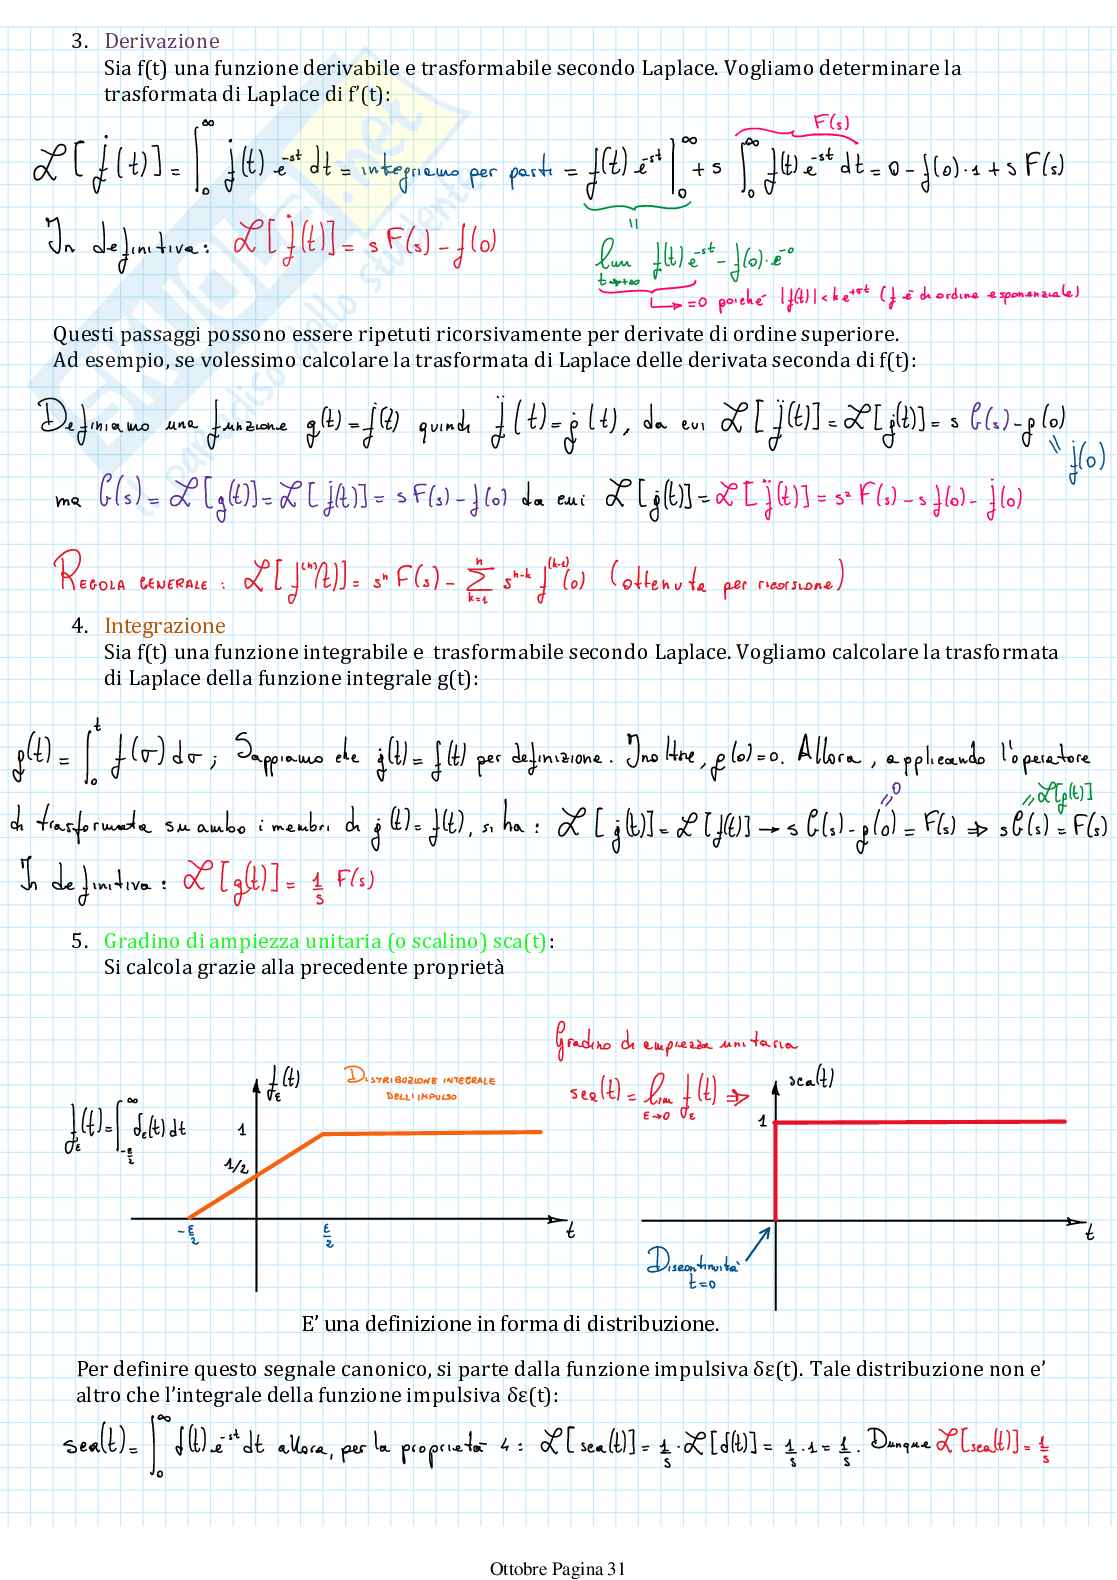 3. Derivazione
Sia f(t) una funzione derivabile e trasformabile secondo Laplace. Vogliamo determinare la
trasformata di Laplace di f'(t):
F(s)
ℒ[ḟ(t)] = ∫₀^∞ ḟ(t) e^-st dt = integriamo per parti = f(t) e^-st |₀^∞ + s ∫₀^∞ f(t) e^-st dt = 0 - f(0)·1 + s F(s)
In definitiva: ℒ[ḟ(t)] = s F(s) - f(0)
=
lim t→+∞ f(t) e^-st - f(0)·e^-0
↳ = 0 poiché |f(t)| < k e^+σt (f è di ordine esponenziale)
Questi passaggi possono essere ripetuti ricorsivamente per derivate di ordine superiore.
Ad esempio, se volessimo calcolare la trasformata di Laplace delle derivata seconda di f(t):
Definiamo una funzione g(t) = ḟ(t) quindi f̈(t) = ġ(t), da cui ℒ[f̈(t)] = ℒ[ġ(t)] = s G(s) - g(0)
= ḟ(0)
ma G(s) = ℒ[g(t)] = ℒ[ḟ(t)] = s F(s) - f(0) da cui ℒ[ġ(t)] = ℒ[f̈(t)] = s² F(s) - s f(0) - ḟ(0)
REGOLA GENERALE: ℒ[f^(n)(t)] = sⁿ F(s) - Σ_{k=1}^{n} s^{n-k} f^(k-1)(0) (ottenuta per ricorsione)
4. Integrazione
Sia f(t) una funzione integrabile e trasformabile secondo Laplace. Vogliamo calcolare la trasformata
di Laplace della funzione integrale g(t):
g(t) = ∫₀^t f(σ) dσ; Sappiamo che ġ(t) = f(t) per definizione. Inoltre, g(0) = 0. Allora, applicando l'operatore
= 0 = ℒ[g(t)]
di trasformata su ambo i membri di ġ(t) = f(t), si ha: ℒ[ġ(t)] = ℒ[f(t)] → s G(s) - g(0) = F(s) ⇒ s G(s) = F(s)
In definitiva: ℒ[g(t)] = 1/s F(s)
5. Gradino di ampiezza unitaria (o scalino) sca(t):
Si calcola grazie alla precedente proprietà
Gradino di ampiezza unitaria
fε(t) DISTRIBUZIONE INTEGRALE
DELL'IMPULSO
sca(t) = lim ε→0 fε(t) ⇒
sca(t)
fε(t) = ∫_{-ε/2}^∞ δε(t) dt
1
1/2
1
-ε/2 ε/2 t
t
Discontinuità
t=0
E' una definizione in forma di distribuzione.
Per definire questo segnale canonico, si parte dalla funzione impulsiva δε(t). Tale distribuzione non e'
altro che l'integrale della funzione impulsiva δε(t):
sca(t) = ∫₀^∞ δ(t) e^-st dt allora, per la proprietà 4: ℒ[sca(t)] = 1/s · ℒ[δ(t)] = 1/s · 1 = 1/s. Dunque ℒ[sca(t)] = 1/s
Ottobre Pagina 31